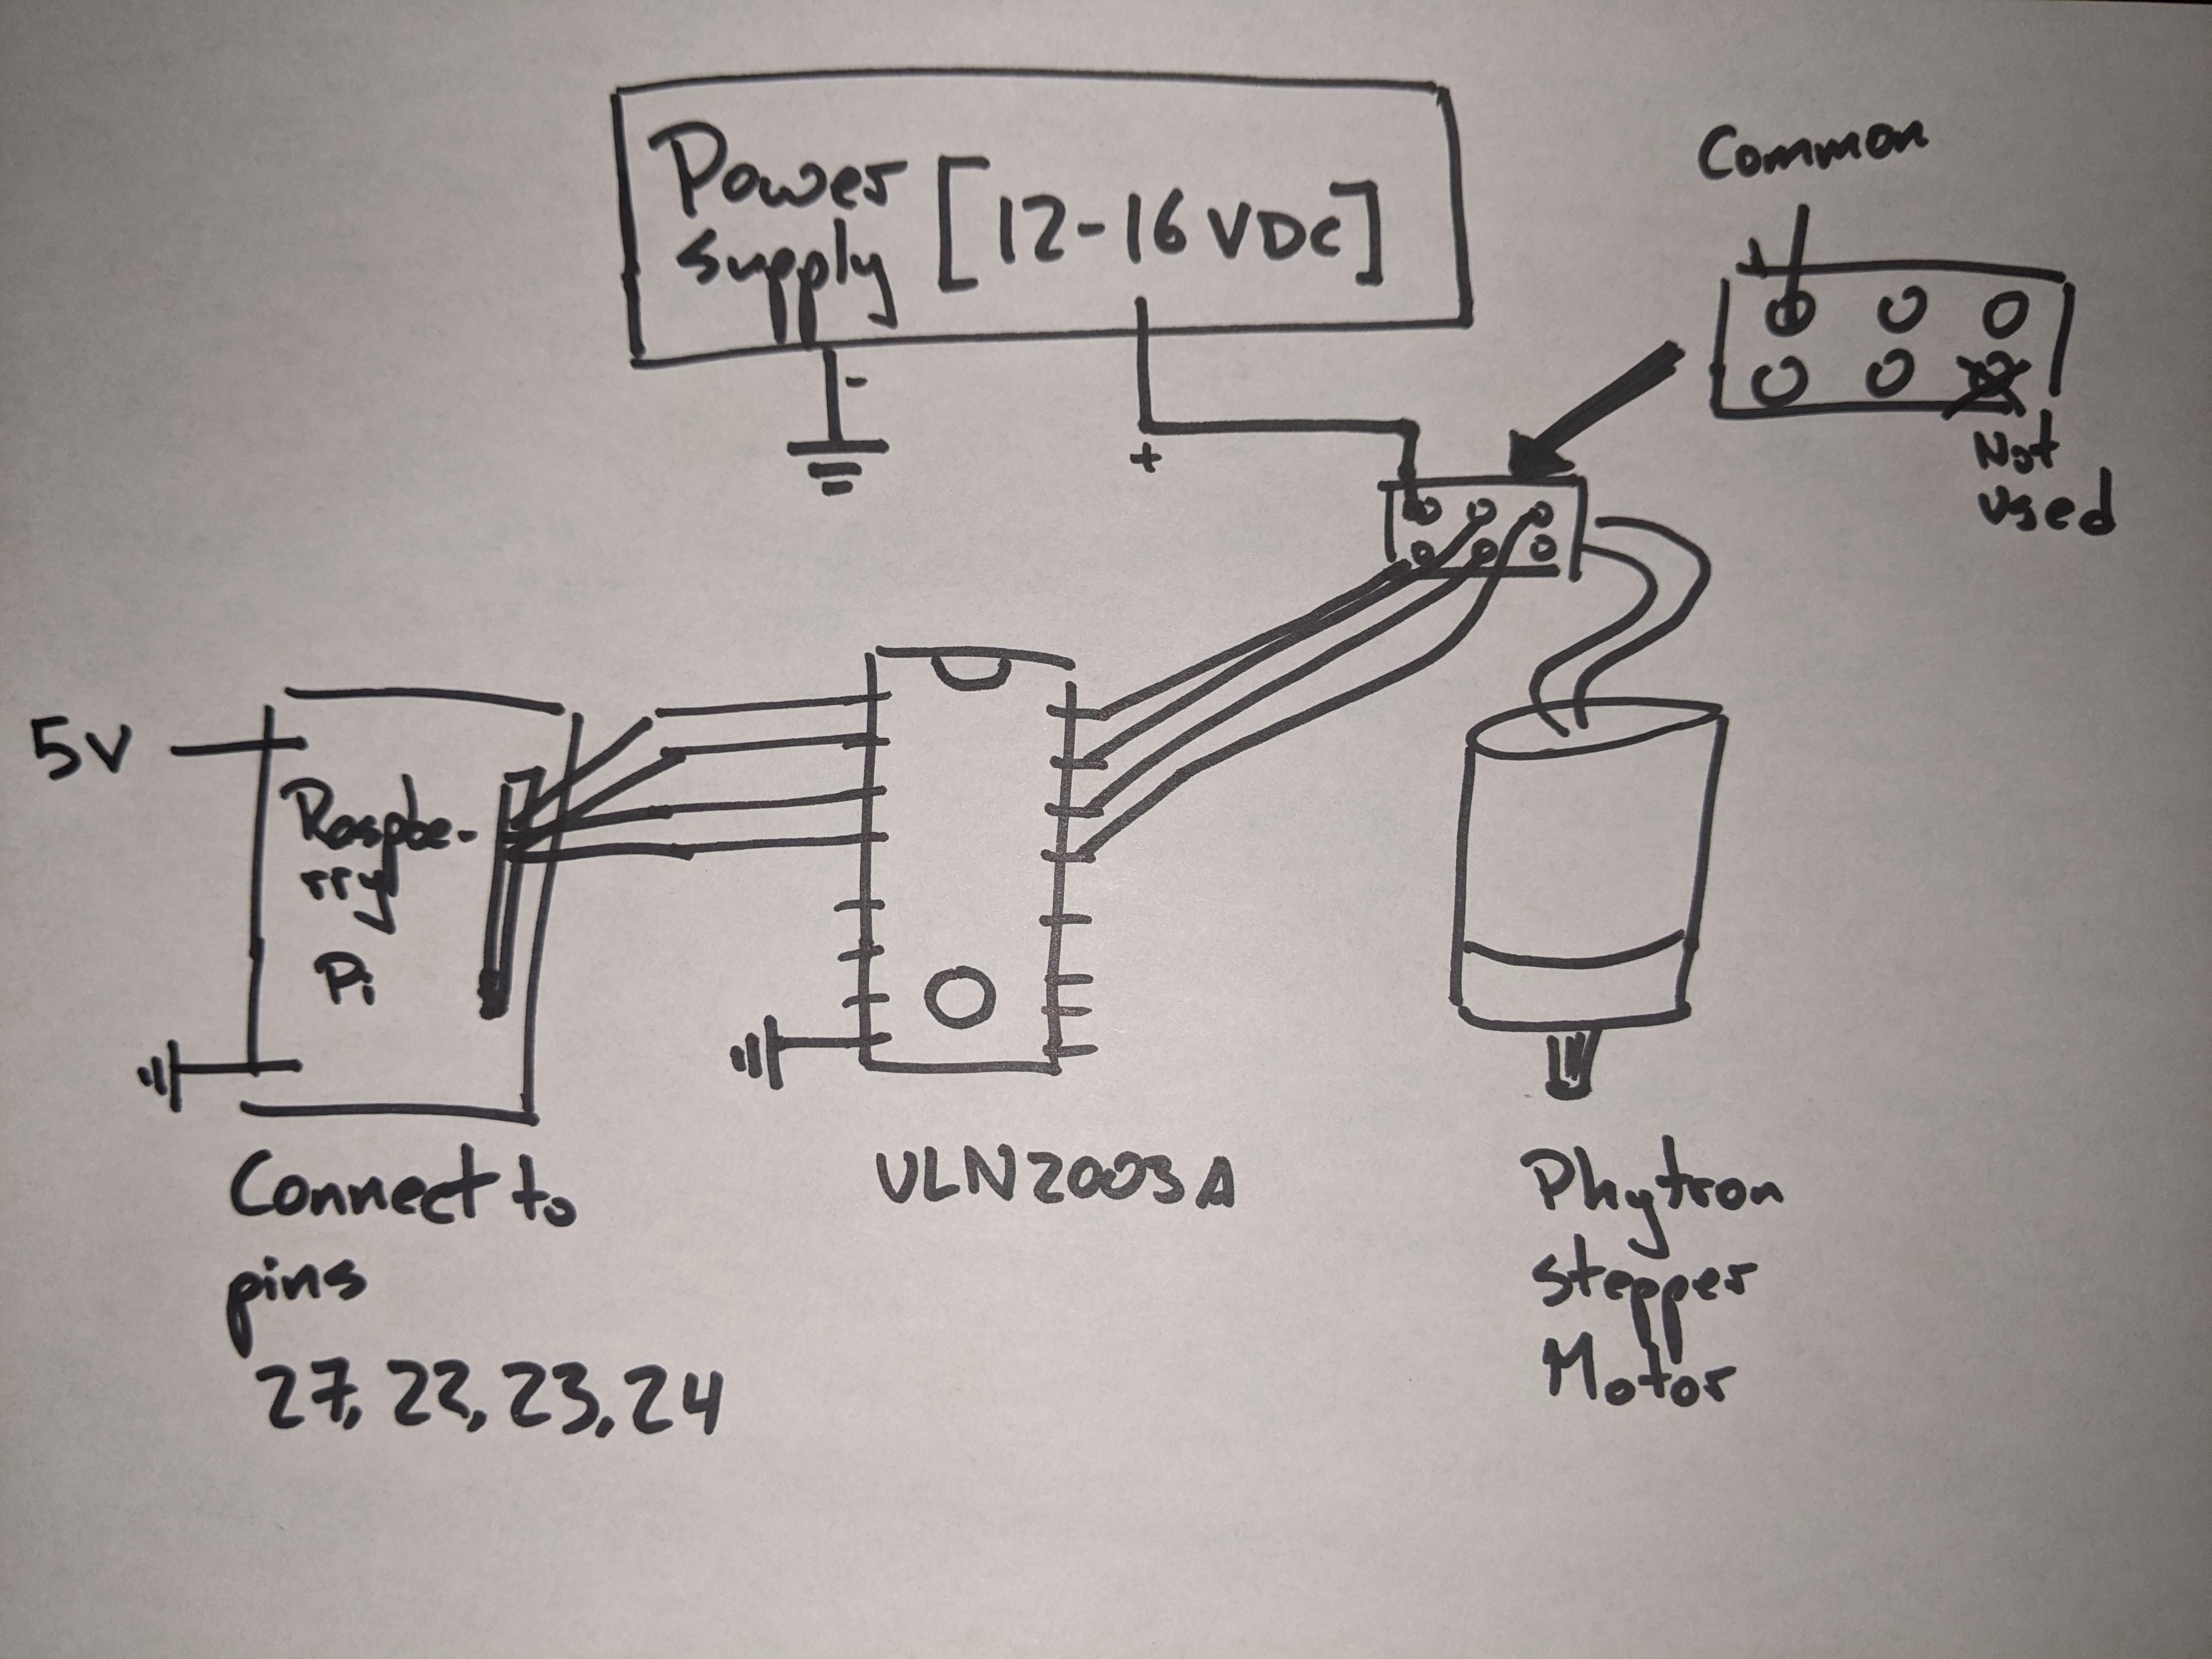 Power
supply
[12-16 VDC]
Common
-
+
Not
used
5V
Raspbe-
rry
Pi
Connect to
pins
27, 22, 23, 24
ULN2003A
Phytron
stepper
Motor